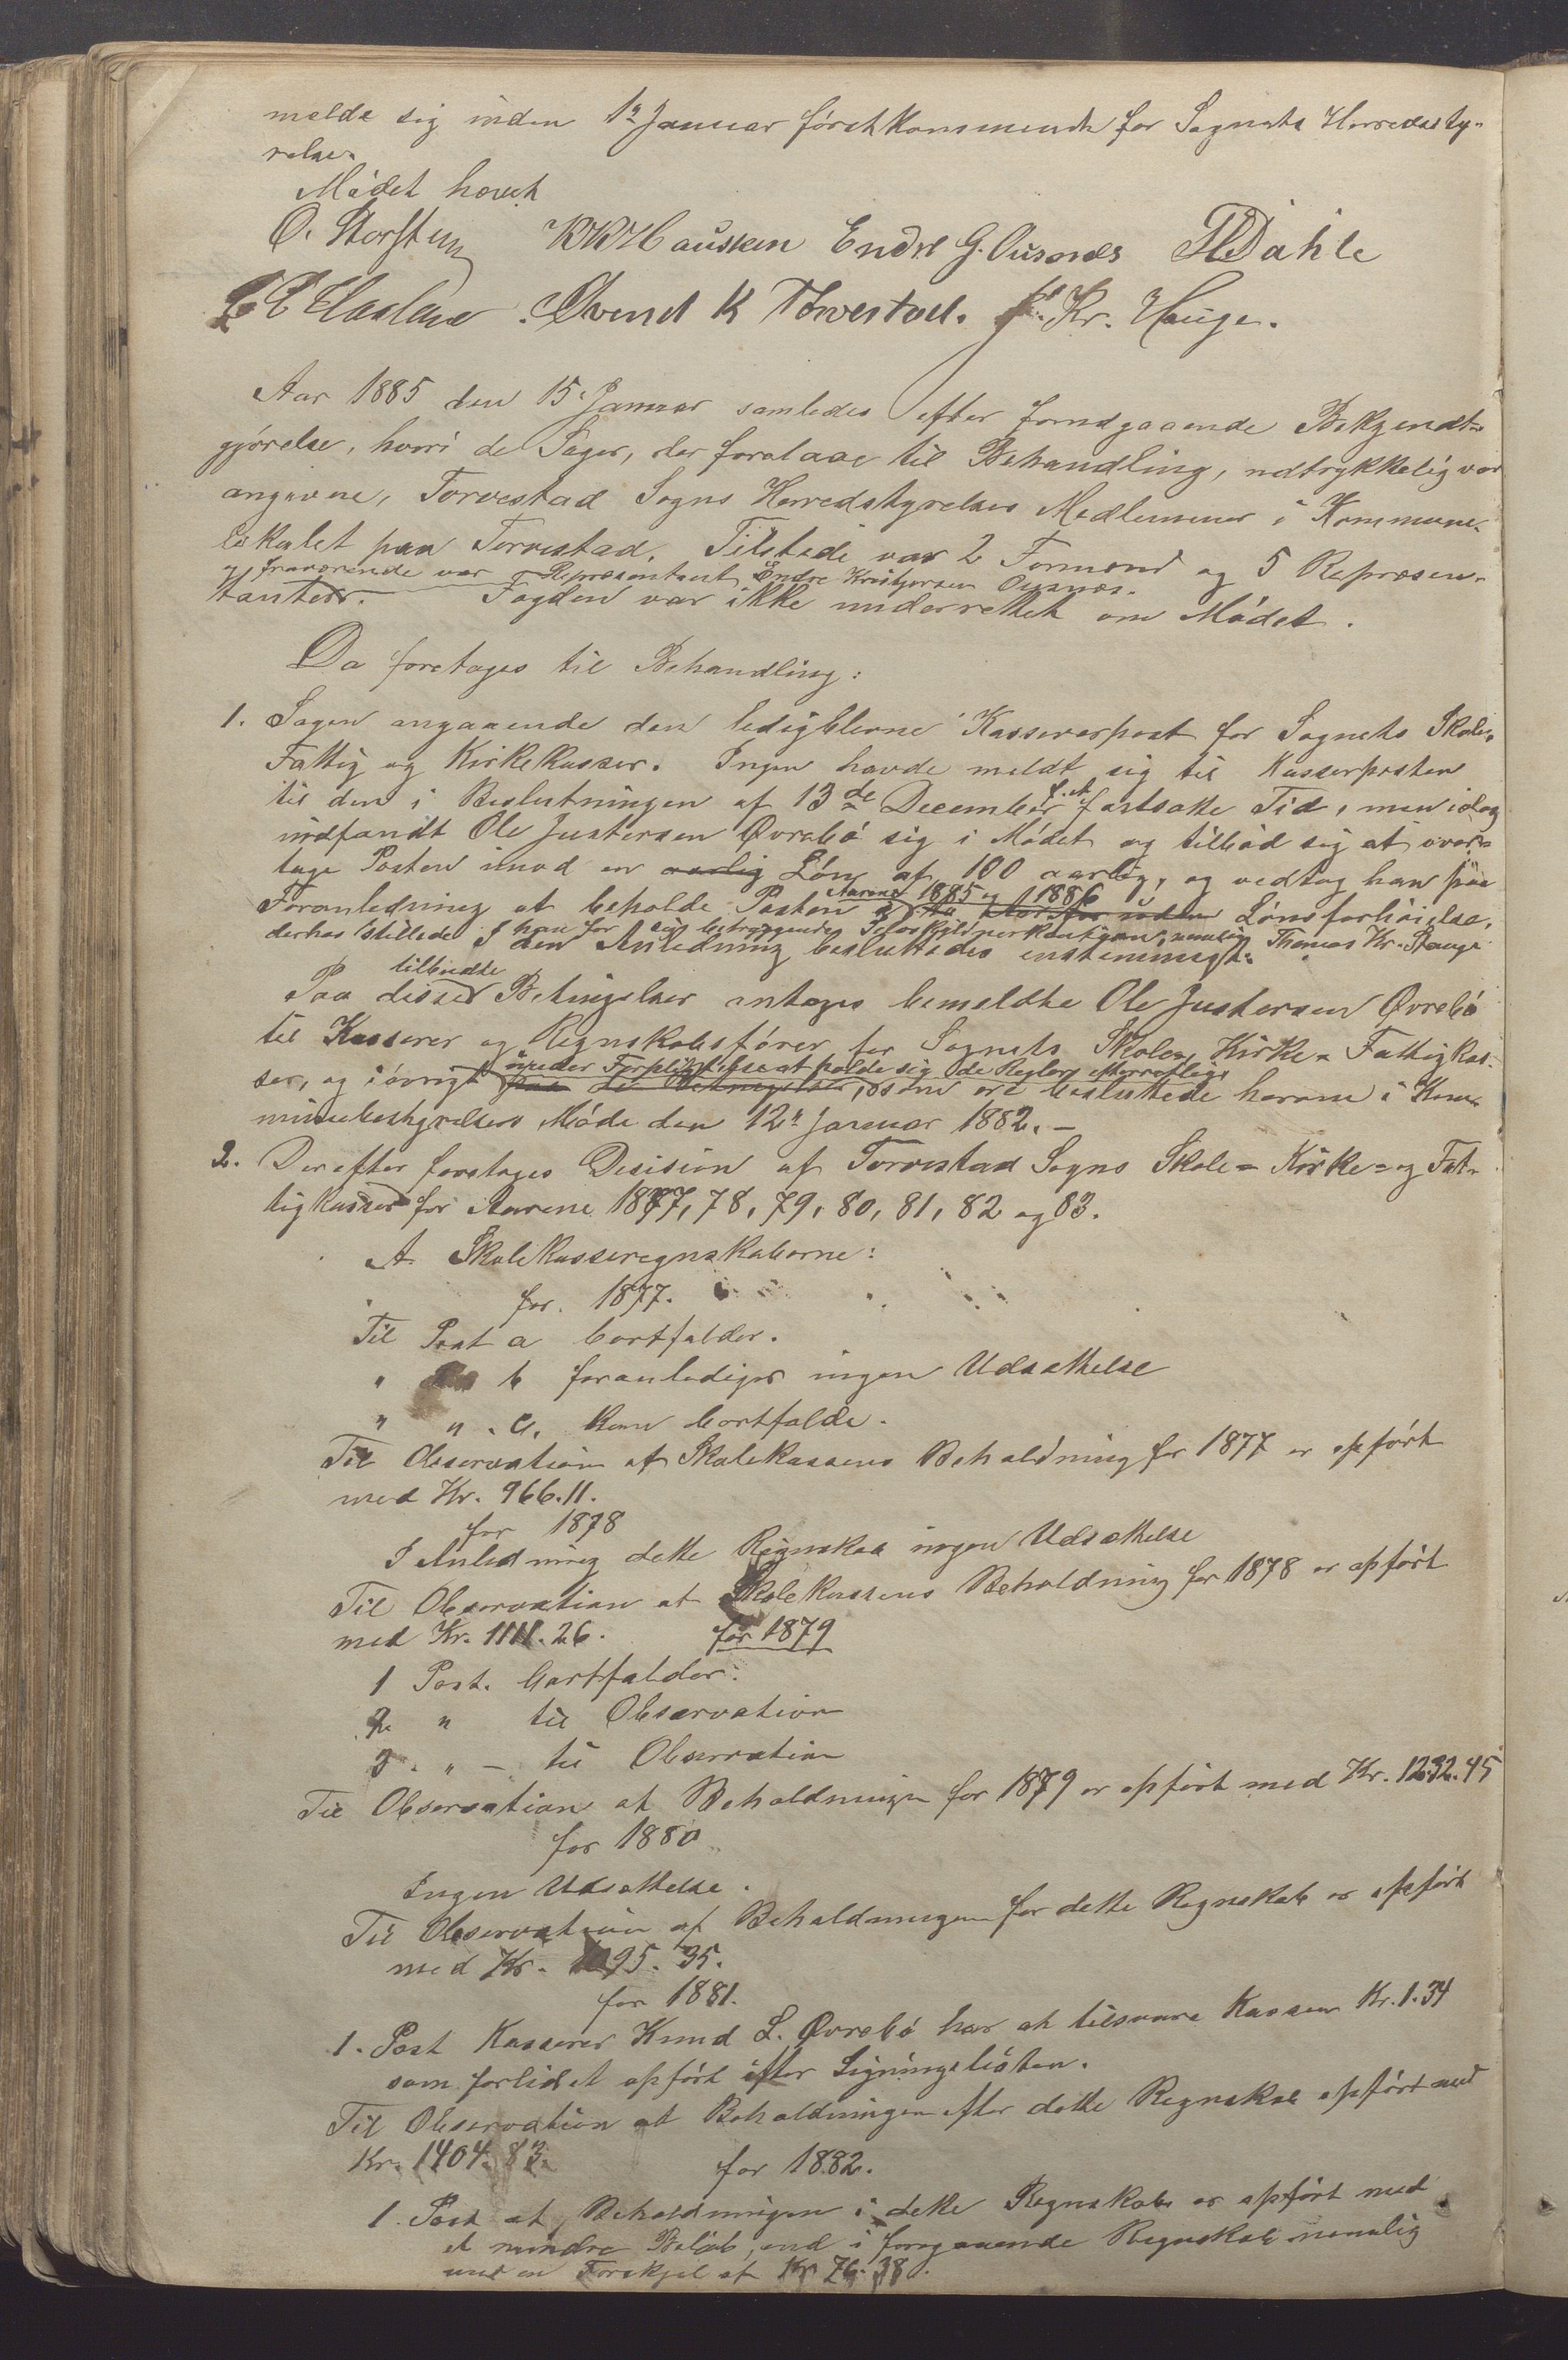 melde sig inden 1ste Januar førstkommende for Sognets Herredssty-
relse.
Mødet hævet
O. Storstein KKHausken Endre G. Ousnes THDahle
Øvend K Torvestad. Kr. Hauge.
Aar 1885 den 15 Januar samledes efter forudgaaende Bekjendt-
gjørelse, hvori de Sager, der forelaae til Behandling, udtrykkelig var
angivne, Torvestad Sogns Herredstyrelses Medlemmer i Kommune-
lokalet paa Torvestad. Tilstede var 2 Formænd og 5 Repræsen-
og fraværende var Repræsentant Endre Ousnes.
tanter. Fogden var ikke underrettet om Mødet.
Da foretoges til Behandling:
1. Sagen angaaende den ledigblevne Kassererpost for Sognets Skole,
Fattig og Kirkekasser. Ingen havde meldt sig til Kasserposten
til den i Beslutningen af 13de December f. A. fastsatte Tid, men idag
indfandt Ole Justersen Øvrebø sig i Mødet og tilbød sig at over-
tage Posten imod en aarlig Løn af 100 aarlig, og vedtog han paa
Foranledning at beholde Posten Aarene 1885 og 1886 uden Lønsforhøielse,
derhos stillede han for sig betryggende Selvskyldnerkaution, nemlig Thomas Kr. Stange
I den Anledning besluttedes enstemmigt:
tilbudte
Paa disse Betingelser antoges bemeldte Ole Justersen Øvrebø
til Kasserer og Regnskabsfører for Sognets Skole, Kirke- Fattigkas-
under Forpligtelse at holde sig de Regler efterrettelig
ser, og iøvrigt paa de Betingelser, som ere besluttede herom i Kom-
munebestyrelsens Møde den 12te Januar 1882. -
2. Derefter foretoges Desision af Torvestad Sogns Skole- Kirke- og Fat-
tigkasser for Aarene 1877, 78, 79, 80, 81, 82 og 83.
A Skolekasseregnskaberne:
for 1877.
Til Post a bortfalder.
" b foranlediger ingen Udsættelse
" " c. kan bortfalde.
Til Observation at Skolekassens Beholdning for 1877 er opført
med Kr. 966.11.
for 1878
I Anledning dette Regnskab ingen Udsættelse
Til Observation at Skolekassens Beholdning for 1878 er opført
med Kr. 1111.26. for 1879
1 Post. bortfalder.
2 " til Observation
3 " - til Observation
Til Observation at Beholdningen for 1879 er opført med Kr. 1232.45
for 1880
Ingen Udsættelse.
Til Observation at Beholdningen for dette Regnskab er opført
med Kr. 1095.35.
for 1881.
1. Post Kasserer Knud L. Øvrebø har at tilsvare Kassen Kr. 1.34
som forlidet opført efter Ligningslisten.
Til Observation at Beholdningen efter dette Regnskab opført med
Kr. 1404.83. for 1882.
1. Post at Beholdningen i dette Regnskab er opført med
et mindre Beløb, end i foregaaende Regnskab nemlig
med en Forskjel af Kr 76.38.